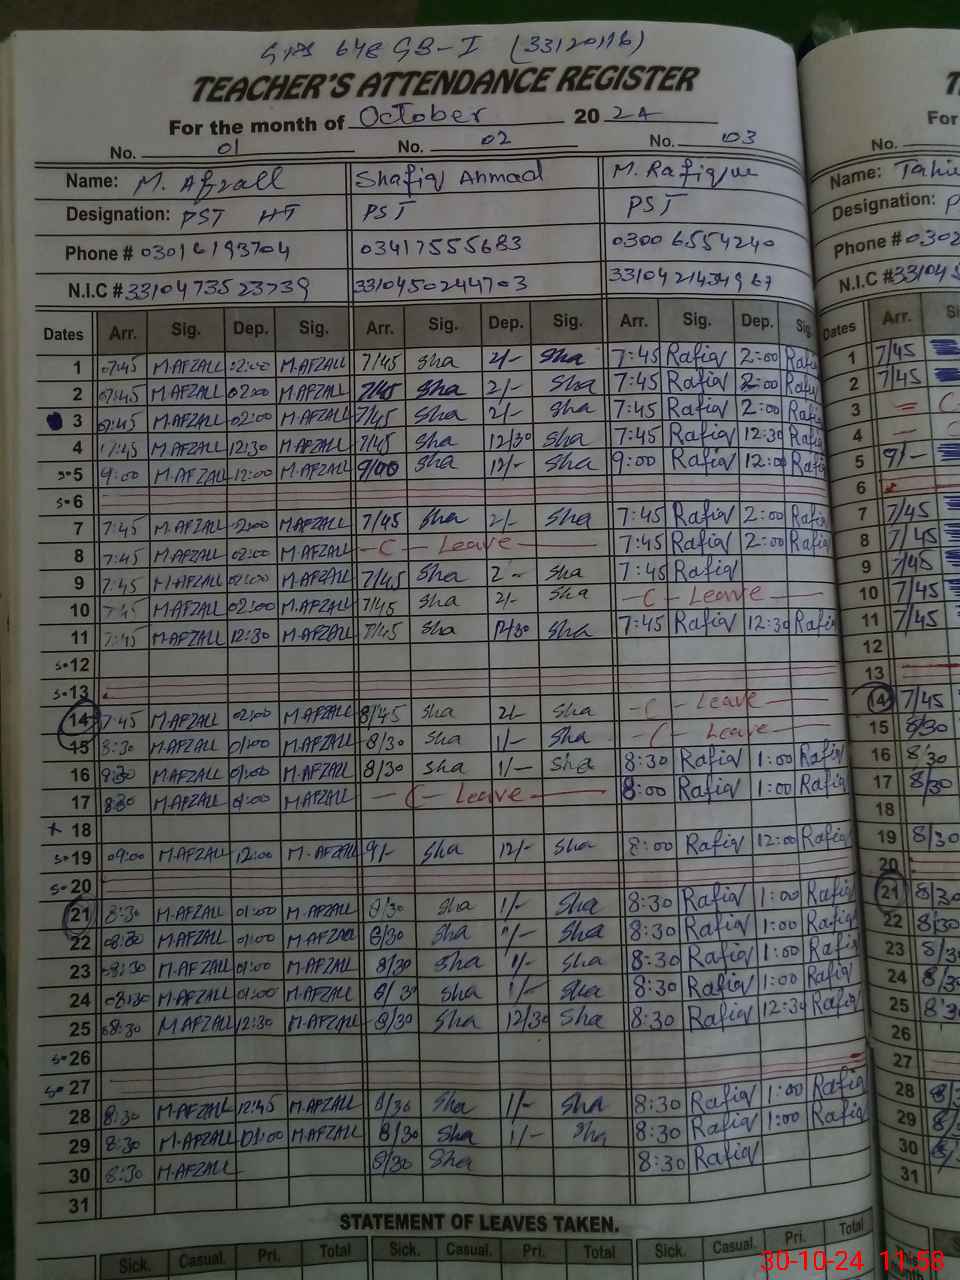 GPS 648 GB-I (33120116)
TEACHER'S ATTENDANCE REGISTER
For the month of October 20 24
No. 01 No. 02 No. 03
Name: M. Afzall Shafiq Ahmad M. Rafique
Designation: PST HT PST PST
Phone # 03016193704 03417555683 03006554240
N.I.C # 3310473523739 3310450244703 3310421434967
Dates Arr. Sig. Dep. Sig. Arr. Sig. Dep. Sig. Arr. Sig. Dep. Sig.
1 07:45 M.AFZALL 02:00 M.AFZALL 7/45 Sha 2/- Sha 7:45 Rafiq 2:00 Rafiq
2 07:45 M.AFZALL 02:00 M.AFZALL 7/45 Sha 2/- Sha 7:45 Rafiq 2:00 Rafiq
3 07:45 M.AFZALL 02:00 M.AFZALL 7/45 Sha 2/- Sha 7:45 Rafiq 2:00 Rafiq
4 07:45 M.AFZALL 12:30 M.AFZALL 7/45 Sha 12/30 Sha 7:45 Rafiq 12:30 Rafiq
S-5 9:00 M.AFZALL 12:00 M.AFZALL 9/00 Sha 12/- Sha 9:00 Rafiq 12:00 Rafiq
S-6
7 7:45 M.AFZALL 02:00 M.AFZALL 7/45 Sha 2/- Sha 7:45 Rafiq 2:00 Rafiq
8 7:45 M.AFZALL 02:00 M.AFZALL - C - Leave - 7:45 Rafiq 2:00 Rafiq
9 7:45 M.AFZALL 02:00 M.AFZALL 7/45 Sha 2 - Sha 7:45 Rafiq
10 7:45 M.AFZALL 02:00 M.AFZALL 7/45 Sha 2/- Sha - C - Leave -
11 7:45 M.AFZALL 12:30 M.AFZALL 7/45 Sha 12/30 Sha 7:45 Rafiq 12:30 Rafiq
S-12
S-13
14 7:45 M.AFZALL 02:00 M.AFZALL 8/45 Sha 2/- Sha - C - Leave -
15 8:30 M.AFZALL 01:00 M.AFZALL 8/30 Sha 1/- Sha - C - Leave -
16 8:30 M.AFZALL 01:00 M.AFZALL 8/30 Sha 1/- Sha 8:30 Rafiq 1:00 Rafiq
17 8:30 M.AFZALL 01:00 M.AFZALL - C - Leave - 8:00 Rafiq 1:00 Rafiq
x 18
S-19 09:00 M.AFZALL 12:00 M.AFZALL 9/- Sha 12/- Sha 8:00 Rafiq 12:00 Rafiq
S-20
21 8:30 M.AFZALL 01:00 M.AFZALL 8/30 Sha 1/- Sha 8:30 Rafiq 1:00 Rafiq
22 08:30 M.AFZALL 01:00 M.AFZALL 8/30 Sha 1/- Sha 8:30 Rafiq 1:00 Rafiq
23 08:30 M.AFZALL 01:00 M.AFZALL 8/30 Sha 1/- Sha 8:30 Rafiq 1:00 Rafiq
24 08:30 M.AFZALL 01:00 M.AFZALL 8/30 Sha 1/- Sha 8:30 Rafiq 1:00 Rafiq
25 08:30 M.AFZALL 12:30 M.AFZALL 8/30 Sha 12/30 Sha 8:30 Rafiq 12:30 Rafiq
S-26
S-27
28 8:30 M.AFZALL 12:45 M.AFZALL 8/30 Sha 1/- Sha 8:30 Rafiq 1:00 Rafiq
29 8:30 M.AFZALL 01:00 M.AFZALL 8/30 Sha 1/- Sha 8:30 Rafiq 1:00 Rafiq
30 8:30 M.AFZALL 8/30 Sha 8:30 Rafiq
31
STATEMENT OF LEAVES TAKEN.
Sick. Casual. Pri. Total Sick. Casual. Pri. Total Sick. Casual. Pri. Total
For
No.
Name:
Designation: P
Phone # 0302
N.I.C # 33104
Dates Arr.
1 7/45
2 7/45
3
4
5 9/-
6
7 7/45
8 7/45
9 7/45
10 7/45
11 7/45
12
13
14 7/45
15 8/30
16 8:30
17 8/30
18
19 8/30
20
21 8/30
22 8/30
23 8/3
24 8/3
25 8:3
26
27
28 8/3
29 8/
30 8/
31
30-10-24 11:58